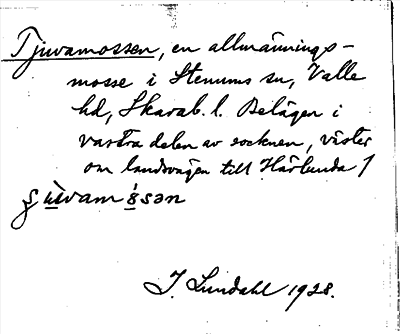 Tjuvamossen, en allmännings-
mosse i Stenums sn, Valle
hd, Skarab. l. Belägen i
västra delen av socknen, väster
om landsvägen till Härlunda /
I. Lundahl 1928.